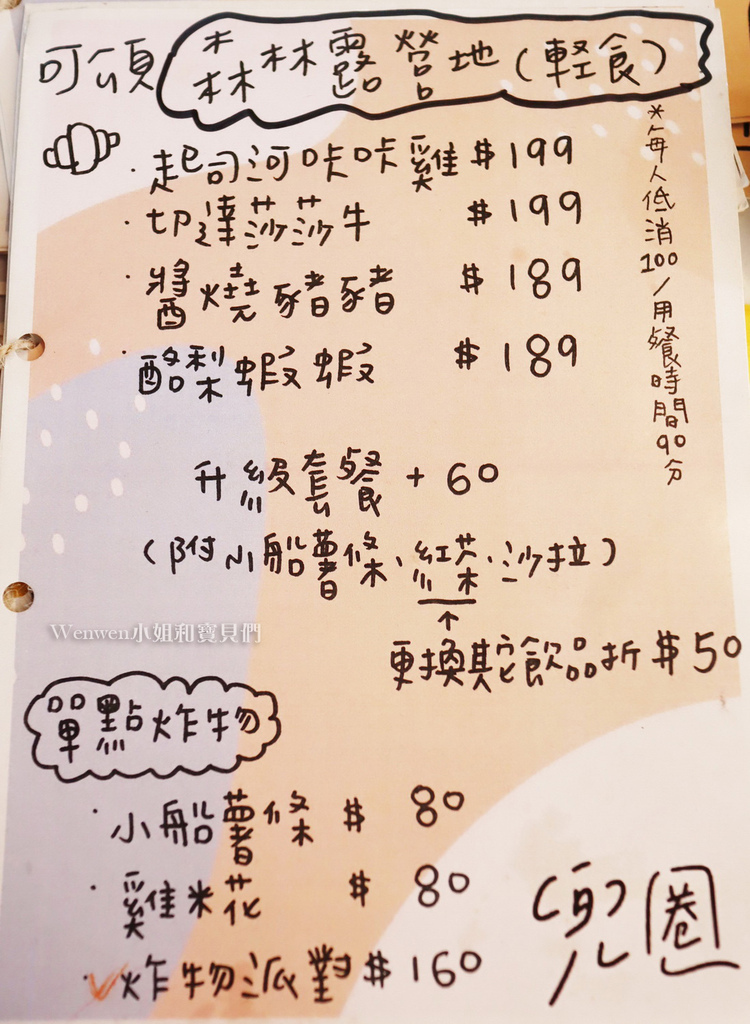 可頌 森林露營地(輕食)
*每人低消100/用餐時間90分
·起司河咔咔雞 $199
·切達莎莎牛 $199
·醬燒豬豬 $189
·酪梨蝦蝦 $189
升級套餐+60
(附小船薯條、紅茶、沙拉)
↑
更換其它飲品折$50
Wenwen小姐和寶貝們
單點炸物
·小船薯條 $ 80
·雞米花 $ 80
·炸物派對$160
兜圈